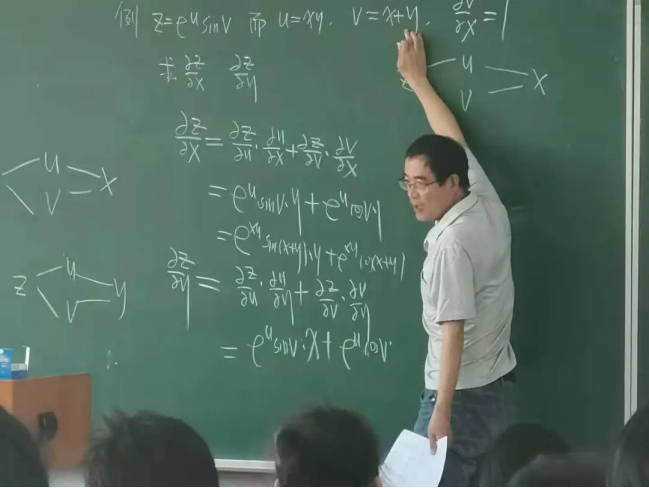 例 z=e^u sin v 而 u=xy, v=x+y. ∂v/∂x=1
求 ∂z/∂x ∂z/∂y
u
v x
∂z/∂x = ∂z/∂u · ∂u/∂x + ∂z/∂v · ∂v/∂x
= e^u sin v · y + e^u cos v · 1
= e^{xy} sin(x+y) · y + e^{xy} cos(x+y)
u
v x
∂z/∂y = ∂z/∂u · ∂u/∂y + ∂z/∂v · ∂v/∂y
= e^u sin v · x + e^u cos v ·
z u
v y